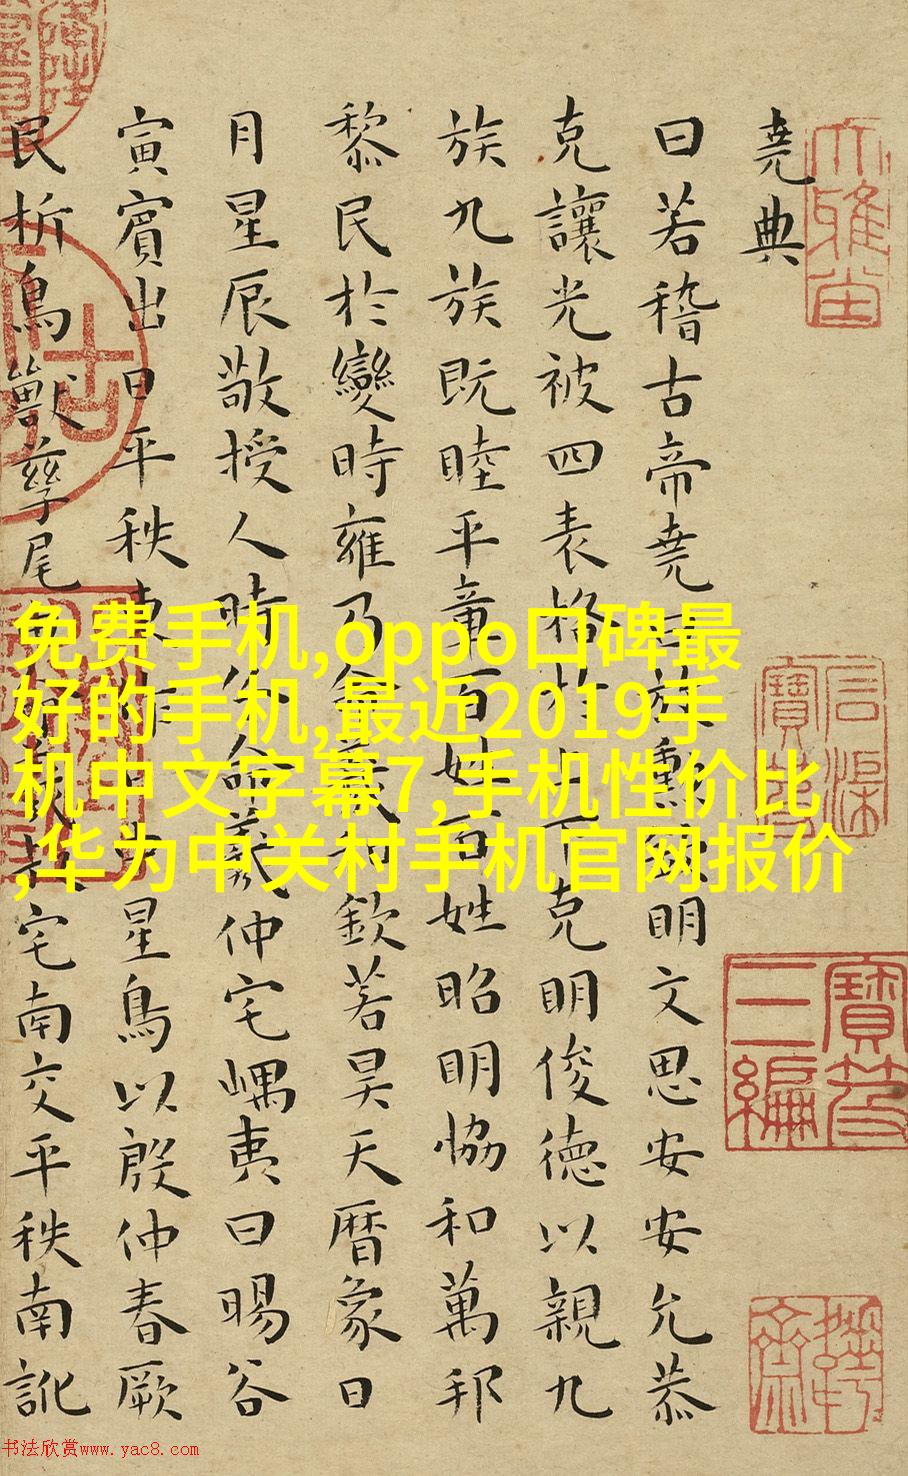 堯典
曰若稽古帝堯曰放勲欽明文思安安允恭
克讓光被四表格于上下克明俊德以親九
族九族既睦平章百姓百姓昭明恊和萬邦
黎民於變時雍乃命羲和欽若昊天暦象日
月星辰敬授人時分命羲仲宅嵎夷曰暘谷
寅賓出日平秩東作日中星鳥以殷仲春厥
民析鳥獸孳尾申命羲叔宅南交平秩南訛
免费手机,oppo口碑最
好的手机,最近2019手
机中文字幕7,手机性价比
,华为中关村手机官网报价
寶笈
三編
书法欣赏www.yac8.com